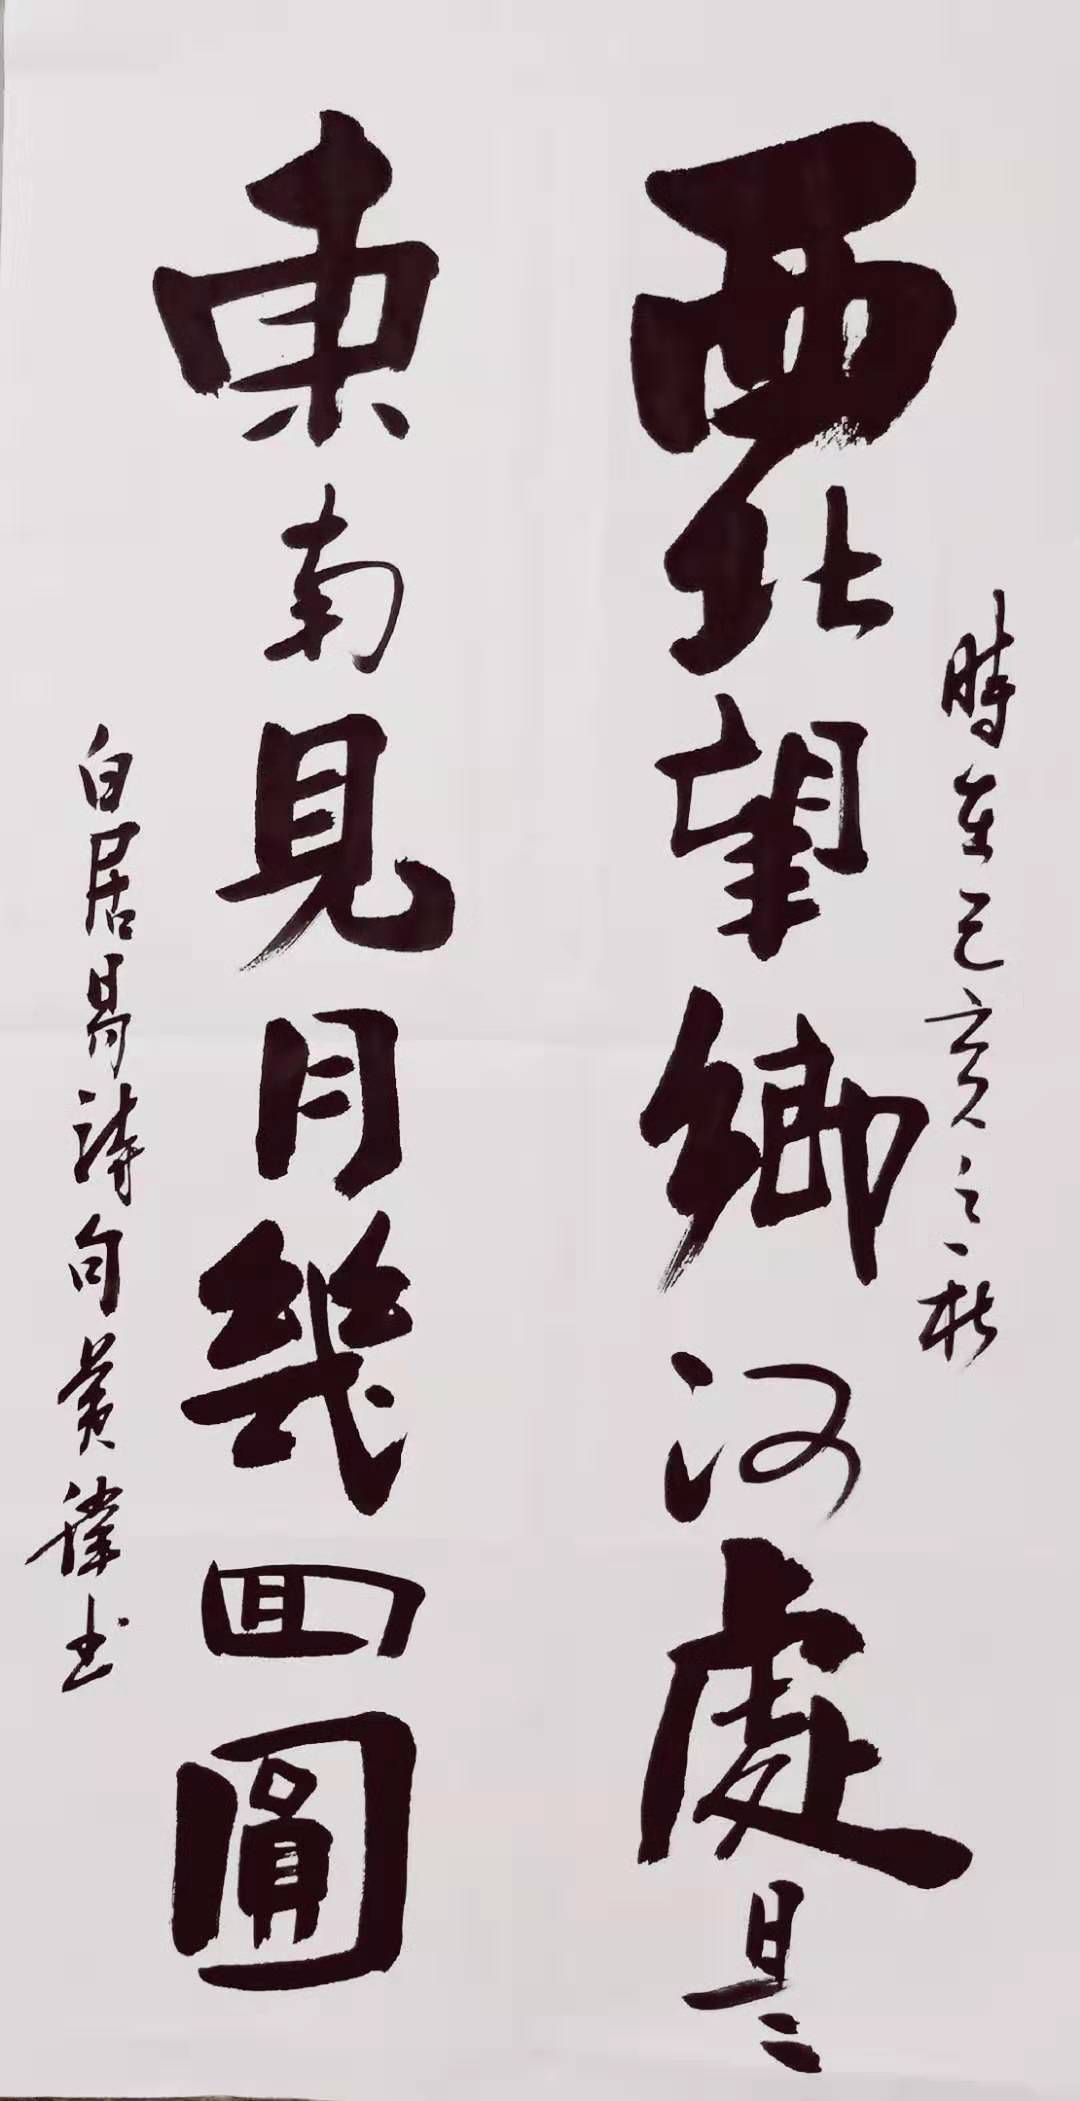 時在己亥之秋
西北望鄉何處是
東南見月幾囬圓
白居易詩句黄书